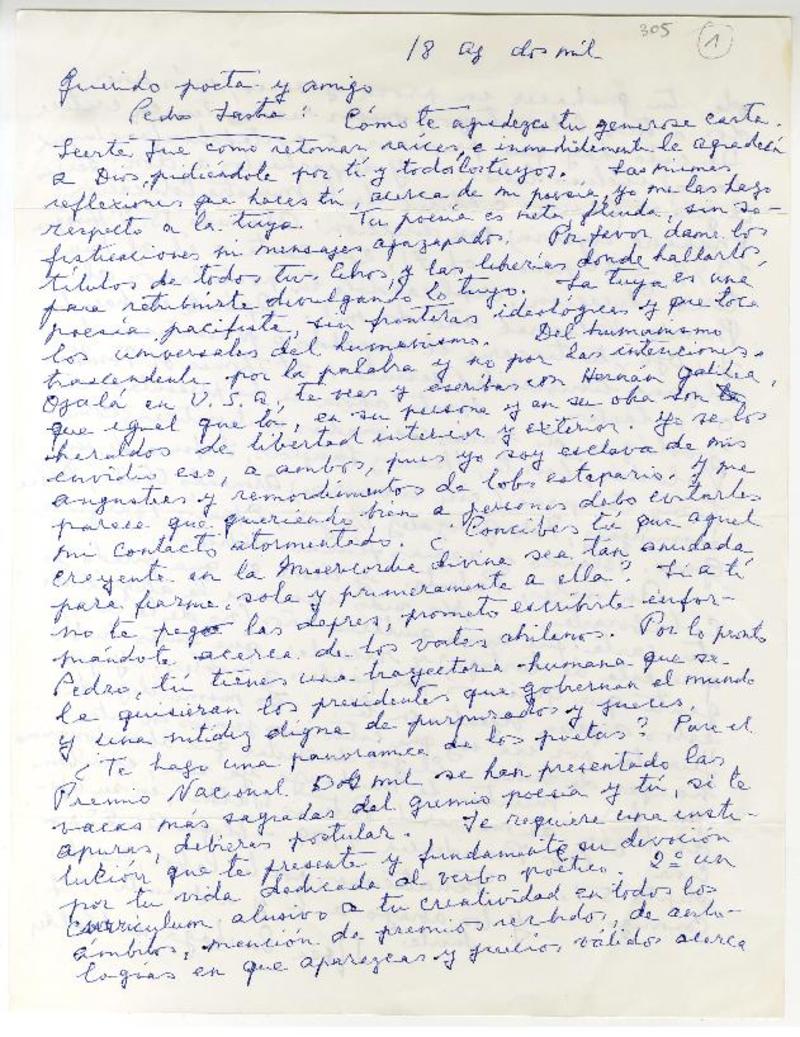 305 1
18 ag dos mil
Querido poeta y amigo
Pedro Lastra: Cómo te agradezco tu generosa carta.
Suerte fue como retomar raíces, e inmediatamente le agradecí
a Dios, pidiéndole por tí y todos los tuyos. Las mismas
reflexiones que haces tú, acerca de mi poesía, yo me las hago
respecto a la tuya. Tu poesía es neta fluida, sin so-
fisticaciones ni mensajes agazapados. Por favor dame los
títulos de todos tus libros, y las librerías donde hallarlos,
para retribuirte divulgando lo tuyo. La tuya es una
poesía pacifista, sin fronteras ideológicas y que toca
los universales del humanismo. Del humanismo
trascendente por la palabra y no por las intenciones.
Ojalá en U.S.A, te veas y escribas con Hernán Galilea,
que igual que tú, en su persona y en su obra son
heraldos de libertad interior y exterior. Yo se los
envidio eso, a ambos, pues yo soy esclava de mis
angustias y remordimientos de lobo estepario. Y me
parece que queriendo bien a personas debo evitarles
mi contacto atormentado. ¿Concibes tú que aquel
creyente en la Misericordia divina sea tan anudada
para fiarme, sola y primeramente a ella? Si a tí
no te pego las depres, prometo escribirte infor-
mándote acerca de los vates chilenos. Por lo pronto
Pedro, tú tienes una trayectoria humana que se
la quisieran los presidentes que gobiernan el mundo
y una nitidez digna de purpurados y jueces.
¿Te hago una panorámica de los poetas? Para el
Premio Nacional Dos mil se han presentado las
vacas mas sagradas del gremio poesía y tú, si te
apuras, debieras postular. Se requiere una insti-
tución que te presente y fundamente su devoción
por tu vida dedicada al verbo poético. 2º un
curriculum alusivo a tu creatividad en todos los
ámbitos, mención de premios recibidos, de anto-
logías en que aparezcas y juicios válidos acerca